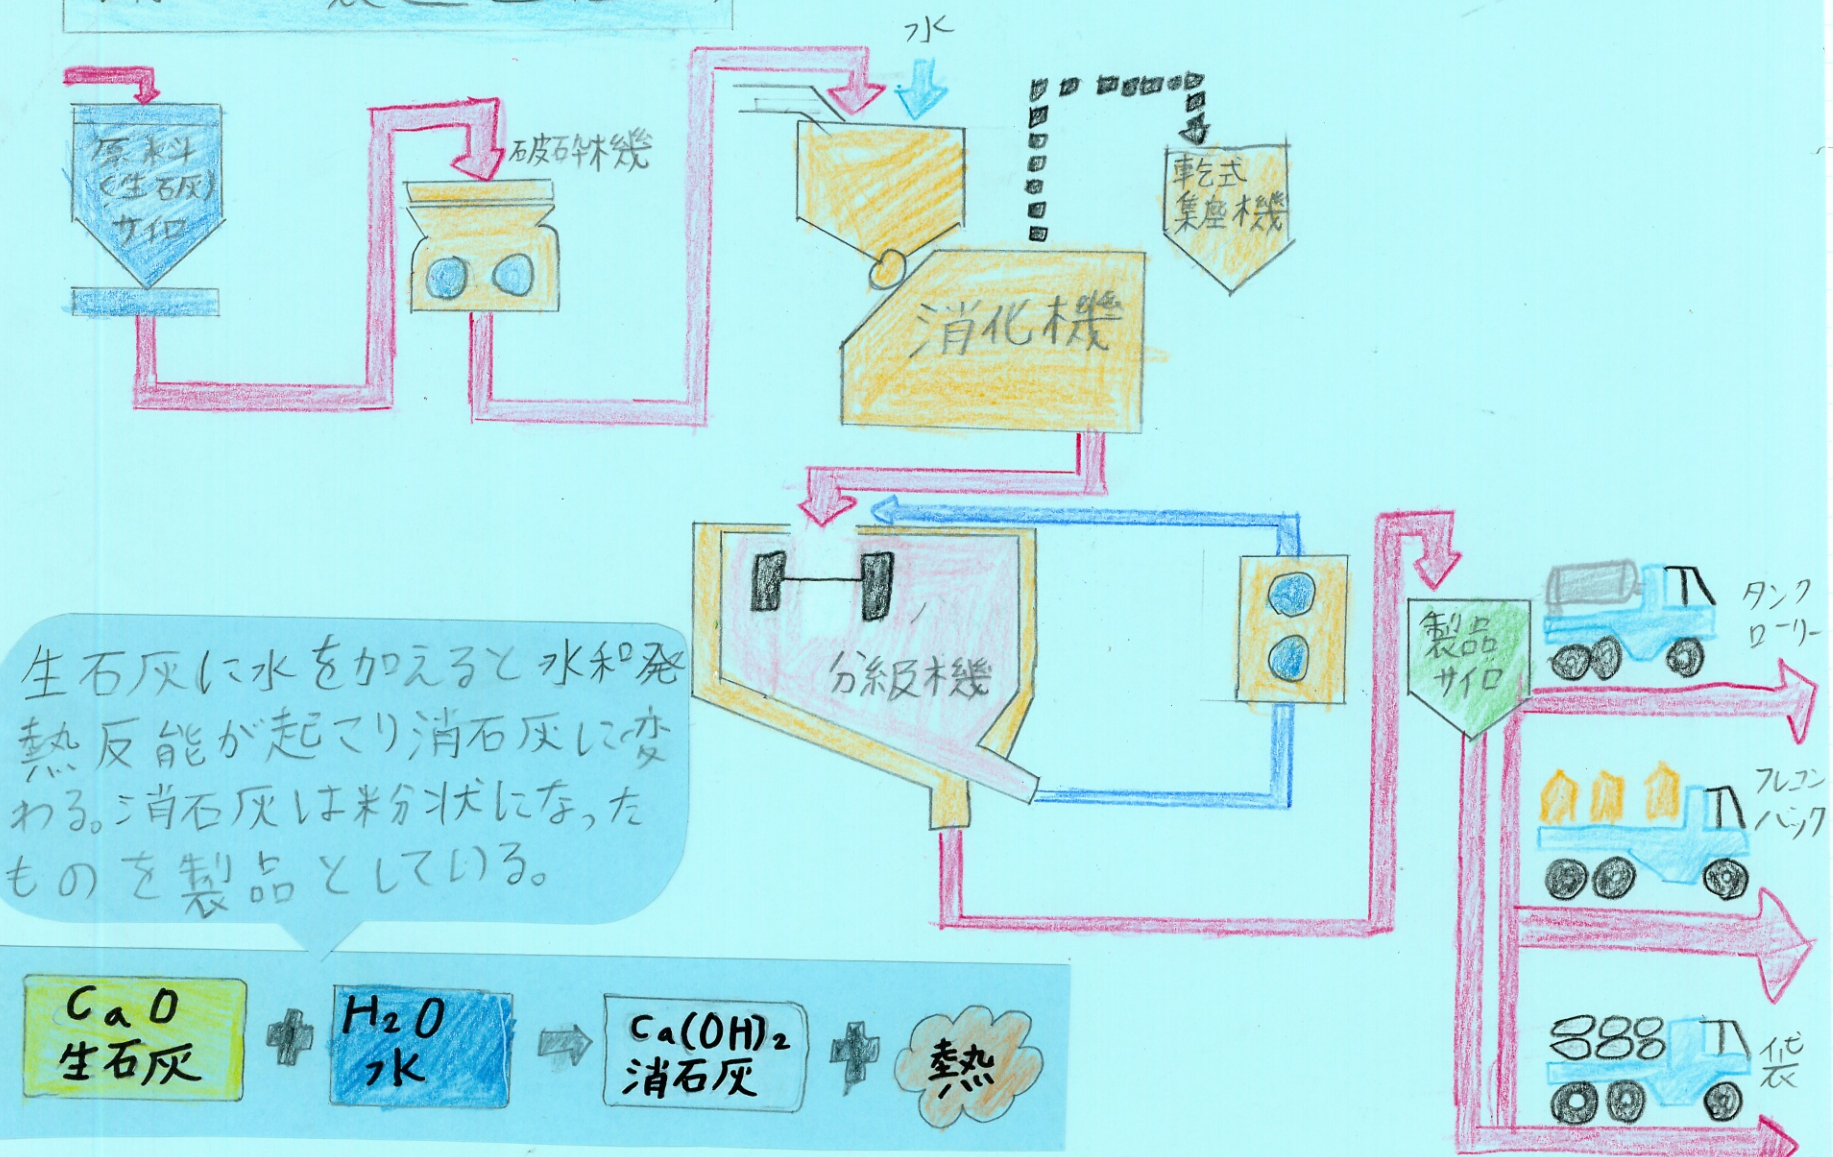 水
原料
(生石灰)
サイロ
破砕機
乾式
集塵機
消化機
分級機
製品
サイロ
タンク
ローリー
フレコン
バック
袋
生石灰に水を加えると水和発
熱反能が起こり消石灰に変
わる。消石灰は粉状になった
ものを製品としている。
CaO
生石灰
+
H2O
水
→
Ca(OH)2
消石灰
+
熱